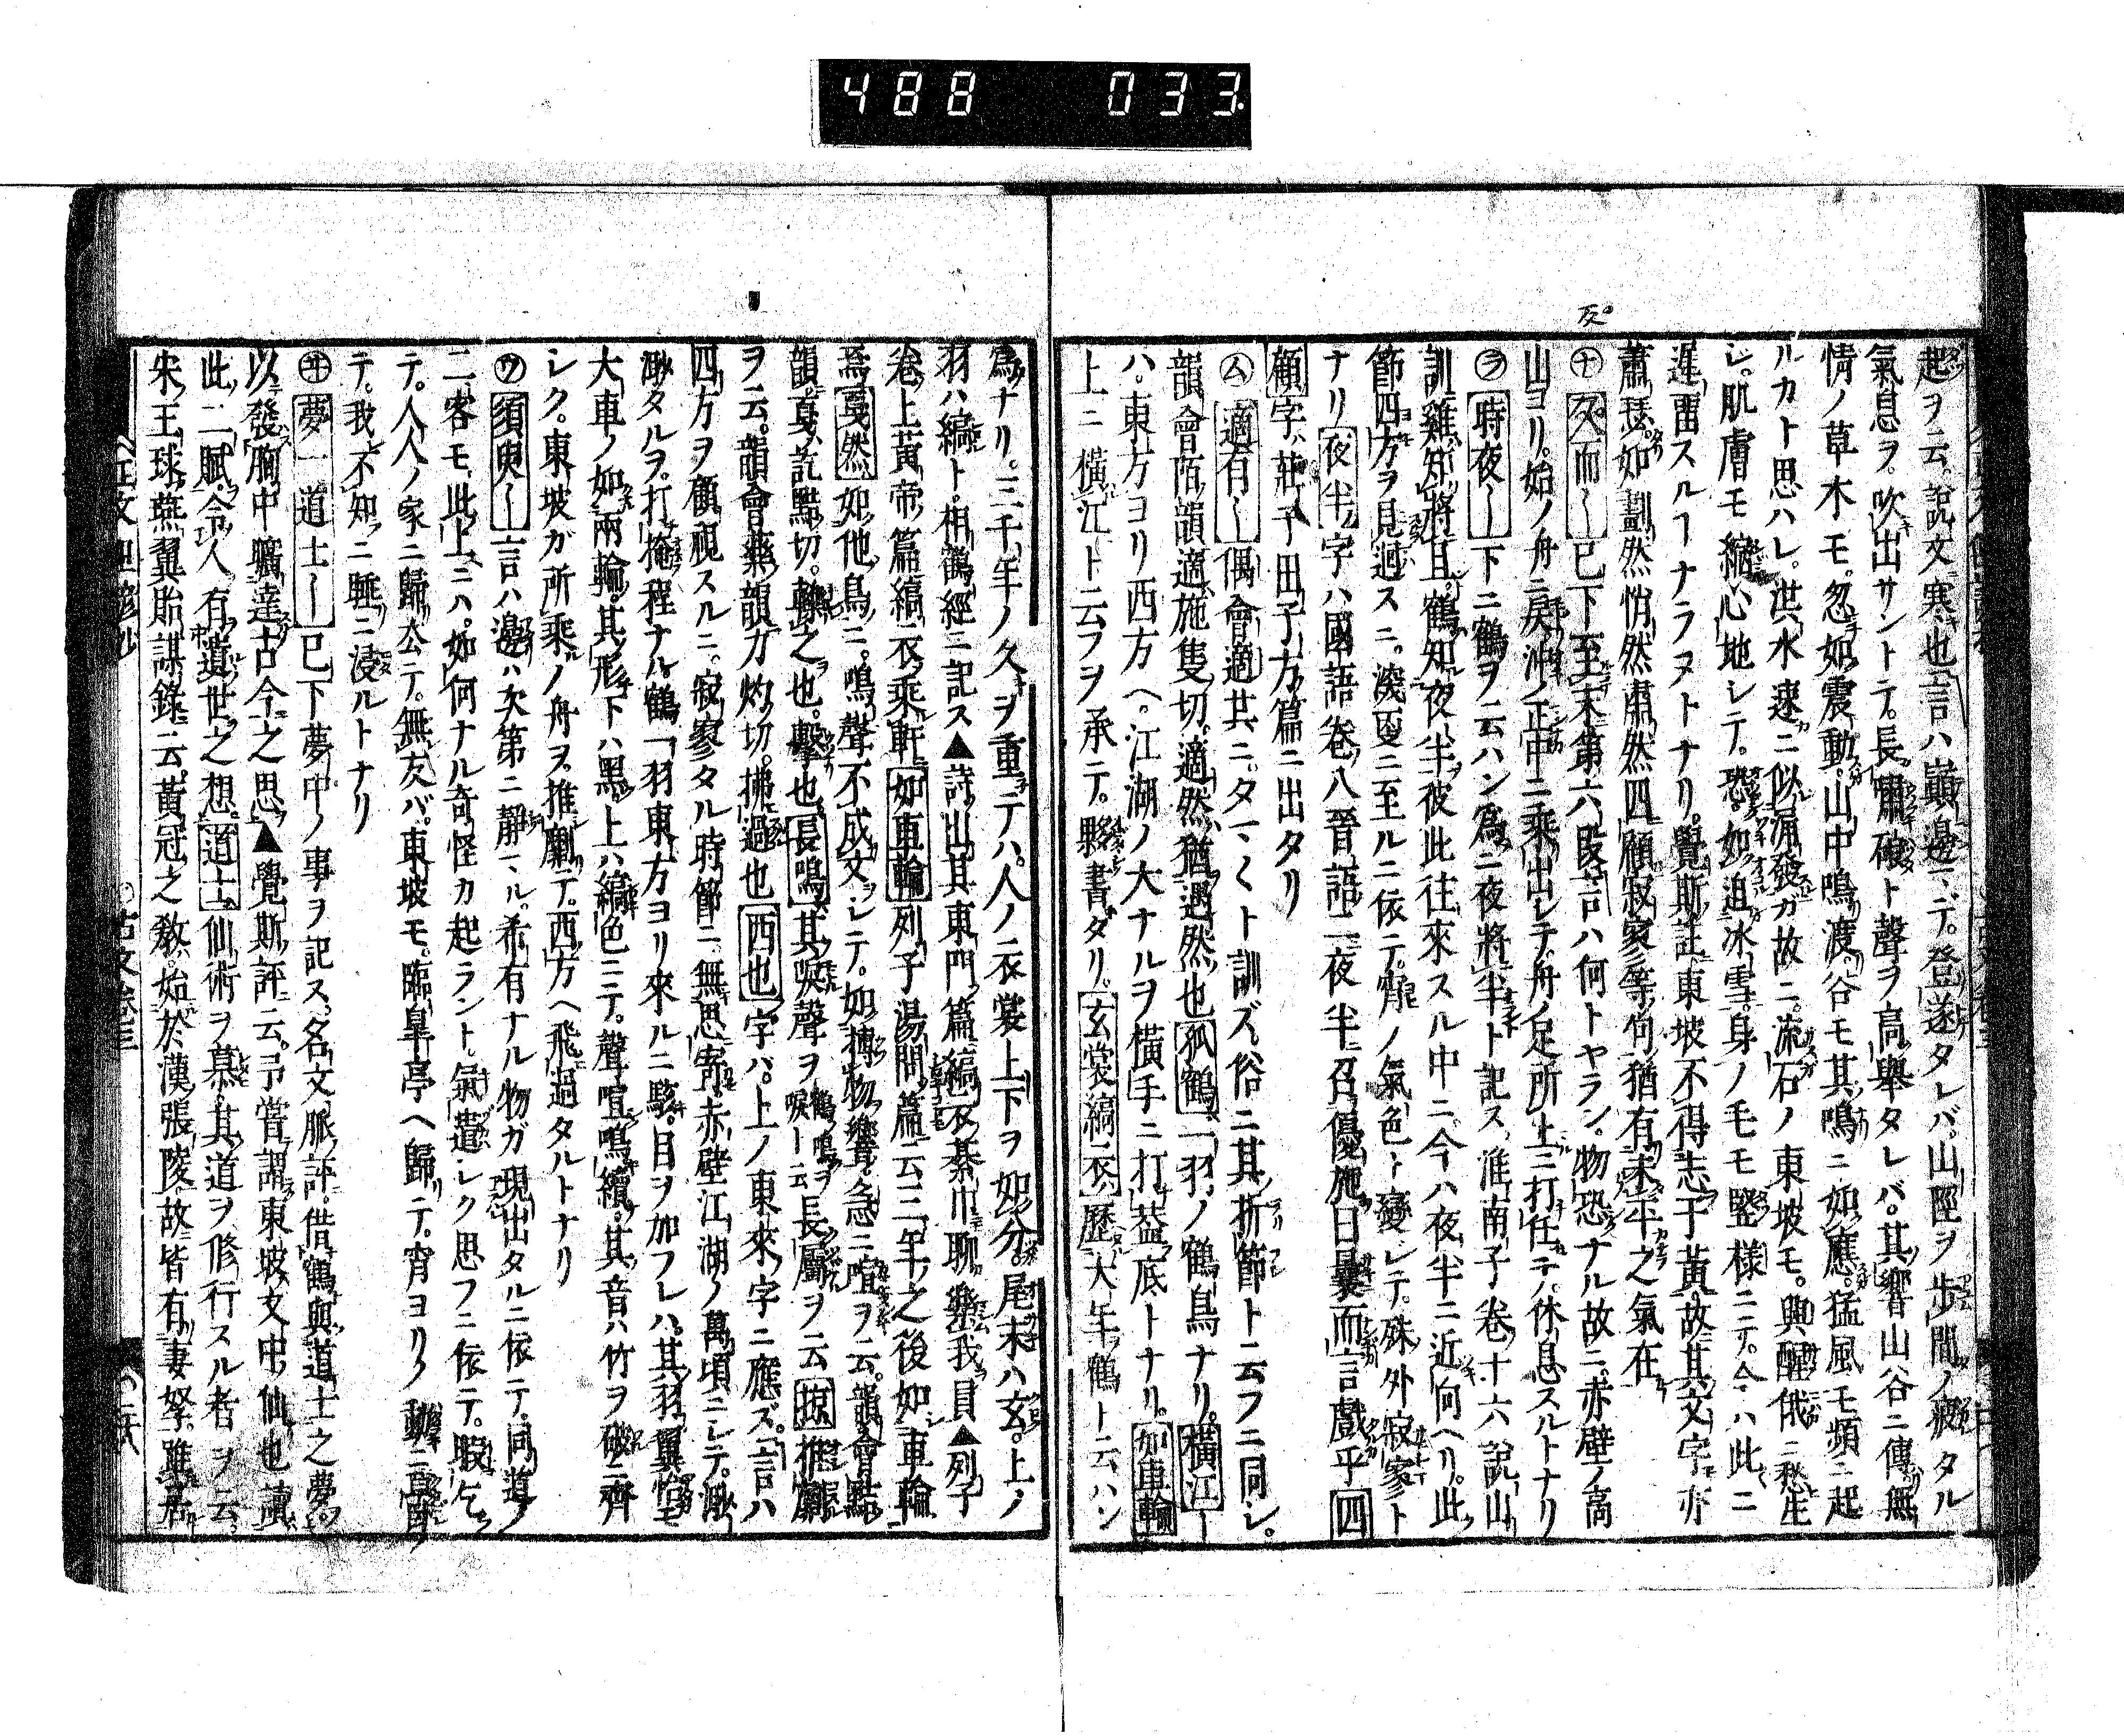 488 033
起ヲ云說文寒也言ハ巓邊マデ登遂タレバ山陘ヲ歩間ノ疲タル
氣息ヲ吹出サントテ長嘯破ト聲ヲ高舉タレバ其響山谷ニ傳無
情ノ草木モ忽如震動山中鳴渡谷モ其鳴ニ如應猛風モ頻ニ起
ルカト思ハレ洪水速ニ似涌發ガ故ニ流石ノ東坡モ興醒俄ニ愁生
シ肌膚モ縮心地レテ恐如迫冰雪身ノ毛モ竪樣ニテ今ハ此ニ
遲畱スルヿナラヌトナリ覺斯註東坡不得志于黃故其文字亦
蕭瑟如劃然悄然肅然四顧寂寥等句猶有未平之氣在
㋣夊而〳〵已下至末第六段言ハ何トヤラン物恐ナル故ニ赤壁ノ高
山ヨリ始ノ舟ニ戾沖ノ正中ニ乘出レテ舟ノ足所止ニ打任テ休息スルトナリ
㋾時夜〳〵下ニ鶴ヲ云ハン爲ニ夜將半ト記ス淮南子卷十六說山
訓雞知將旦鶴知夜半彼此往來スル中ニ今ハ夜半ニ近向ヘリ此
節四方ヲ見迴スニ深更ニ至ルニ依テ宵ノ氣色ト變レテ殊外寂寥ト
ナリ夜半字ハ國語卷八晉語一夜半召優施曰曩而言戲乎四
顧字莊子田子方篇ニ出タリ
㋰適有〳〵偶會適其ニタマ〱ト訓ズ俗ニ其折節ト云フニ同シ
韻會陌韻適施隻切適然猶遇然也孤鶴一羽ノ鶴鳥ナリ橫江〳〵
ハ東方ヨリ西方ヘ江湖ノ大ナルヲ橫手ニ打葢底トナリ如車輪
上ニ橫江ト云フヲ承テ夥書ダリ玄裳縞衣歷大年鶴ト云ハン
爲ナリ三千年ノ久ヲ重テハ人ノ衣裳上下ヲ如分尾末ハ玄上ノ
羽ハ縞ト相鶴經ニ記ス▲詩出其東門篇縞衣綦巾聊樂我員▲列子
卷上黃帝篇縞衣乘軒如車輪列子湯問篇云三年之後如車輪
焉戛然如他鳥ニ鳴聲不成文レテ如摶物響急ニ喧ヲ云韻會黠
韻戛訖黠切轢之也擊也長鳴其唳聲ヲ鶴鳴ヲ唳ト云長屬ヲ云掠推劘
ヲ云韻會藥韻力灼切拂過也西也字ハ上ノ東來字ニ應ズ言ハ
四方ヲ顧視スルニ寂寥タル時節ニ無思寄赤壁江湖ノ萬頃ニレテ渺
渺タルヲ打掩程ナル鶴一羽東方ヨリ來ルニ駭目ヲ加フレハ其羽翼恰モ
大車ノ如兩輪其形下ハ黑上ハ縞色ニテ聲喧鳴續其音ハ竹ヲ破ニ齊
シク東坡ガ所乘ノ舟ヲ推劘テ西方ヘ飛過タルトナリ
㋒須臾〳〵言ハ邊ハ次第ニ靜マル希有ナル物ガ現出タルニ依テ同道ノ
二客モ此上ニハ如何ナル奇怪カ起ラント氣遣レク思フニ依テ暇乞
テ人人ノ家ニ歸去テ無友バ東坡モ臨皋亭ヘ歸テ宵ヨリノ動ニ草臥
テ我不知ニ睡ニ浸ルトナリ
㋼夢一道士〳〵已下夢中ノ事ヲ記ス名文脈評借鶴與道士之夢
以發胸中曠達古今之思▲覺斯評云予嘗謂東坡文中仙也讀
此二賦令人有遺世之想道士仙術ヲ慕其道ヲ修行スル者ヲ云
宋王球燕翼貽謀錄云黃冠之敎始於漢張陵故皆有妻孥雖居